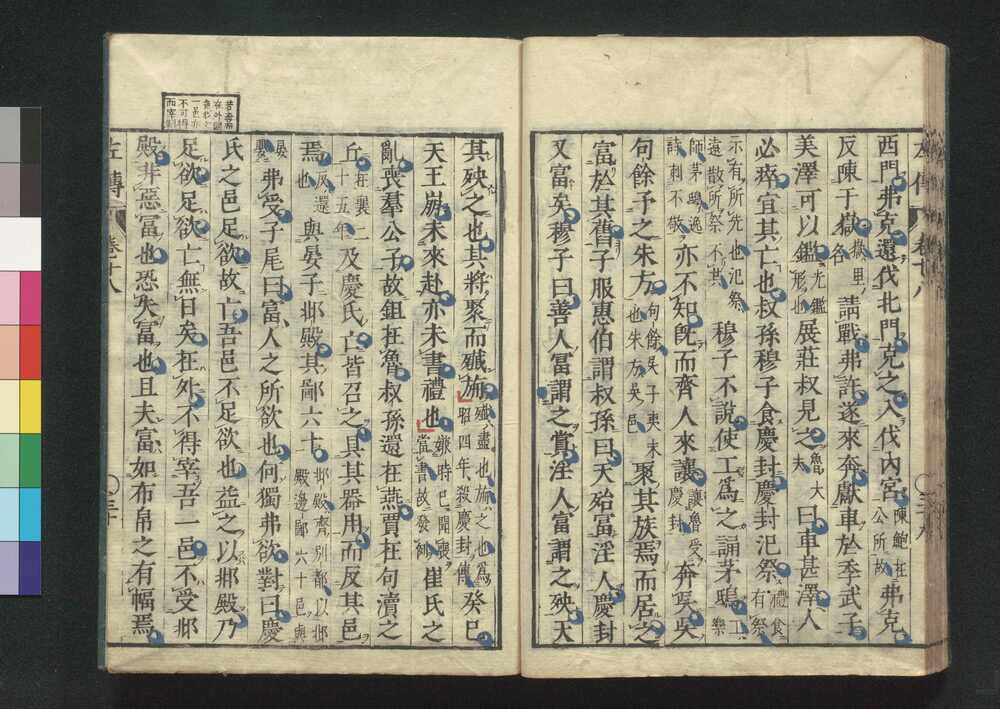 左傳 卷十八
西門弗克還伐北門克之入伐內宮陳鮑在公所故弗克
反陳于嶽嶽里名請戰弗許遂來奔獻車於季武子
美澤可以鑑光鑑形也展莊叔見之魯大夫曰車甚澤人
必瘁宜其亡也叔孫穆子食慶封慶封氾祭禮食有祭
示有所先也氾祭遠散所祭不共穆子不說使工爲之誦茅鴟工樂
師茅鴟逸詩刺不敬亦不知旣而齊人來讓讓魯受慶封奔吳吳
句餘予之朱方句餘吳子夷末也朱方吳邑聚其族焉而居之
富於其舊子服惠伯謂叔孫曰天殆富淫人慶封
又富矣穆子曰善人富謂之賞淫人富謂之殃天
其殃之也其將聚而殲旃殲盡也旃之也爲昭四年殺慶封傳癸巳
天王崩未來赴亦未書禮也嫌時已聞喪當書故發例崔氏之
亂喪羣公子故鉏在魯叔孫還在燕賈在句瀆之
丘在襄二十五年及慶氏亡皆召之具其器用而反其邑
焉反還也與晏子邶殿其鄙六十邶殿齊別都以邶殿邊鄙六十邑與
晏嬰弗受子尾曰富人之所欲也何獨弗欲對曰慶
氏之邑足欲故亡吾邑不足欲也益之以邶殿乃
足欲足欲亡無日矣在外不得宰吾一邑不受邶
殿非惡富也恐失富也且夫富如布帛之有幅焉
在外
一邑亦
不可得
而宰制
左傳 卷十八 三十